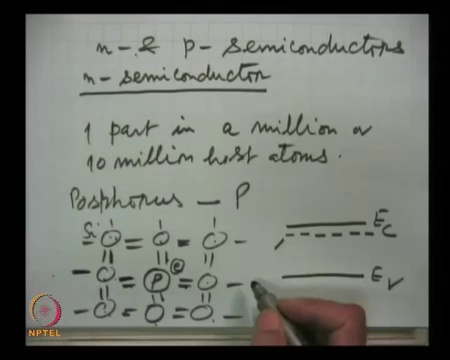 n- & p- semiconductors
n- semiconductor
1 part in a million or
10 million host atoms.
Posphorus - P
Si
e
P
Ec
Ev
NPTEL